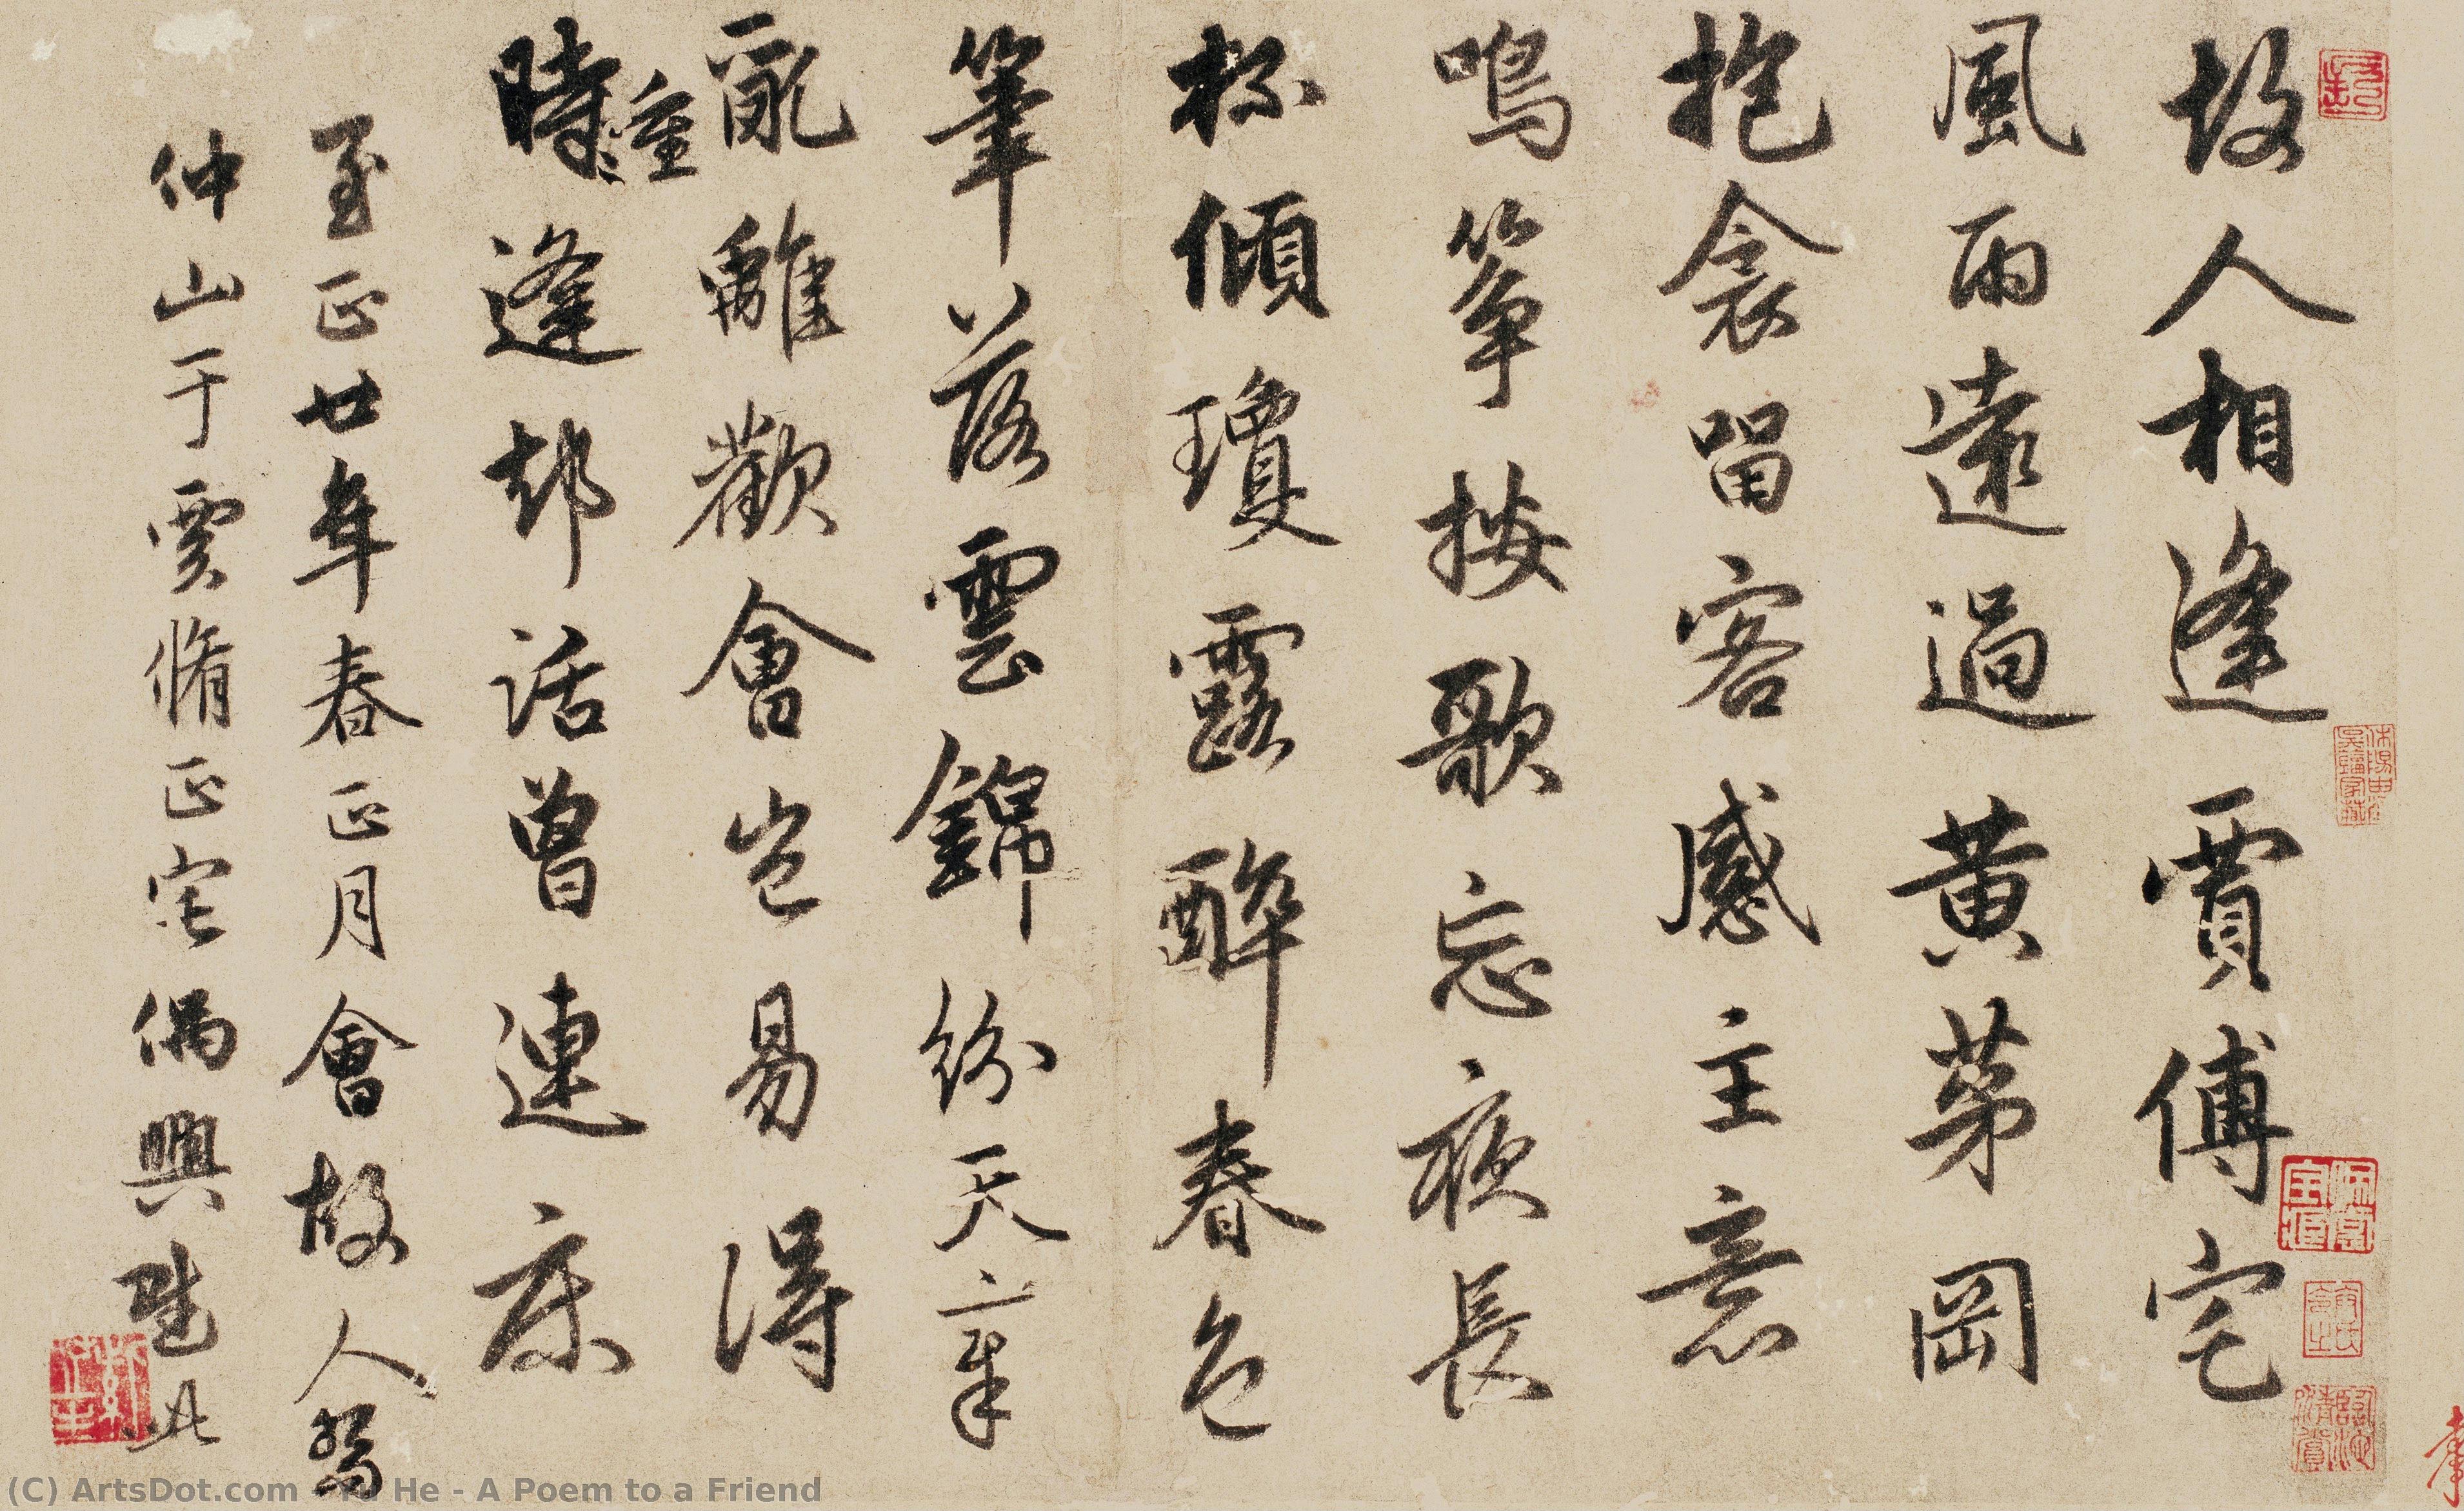 故人相逢賈傅宅
風雨遠過黃茅岡
抱衾留客感主意
鳴箏按歌忘夜長
杯傾瓊露醉春色
筆落雲錦紛天章
亂離歡會豈易得
時重逢却話曾連床
至正廿年春正月會故人
仲山于賈脩正宅偶興賦此
(C) ArtsDot.com - Yu He - A Poem to a Friend